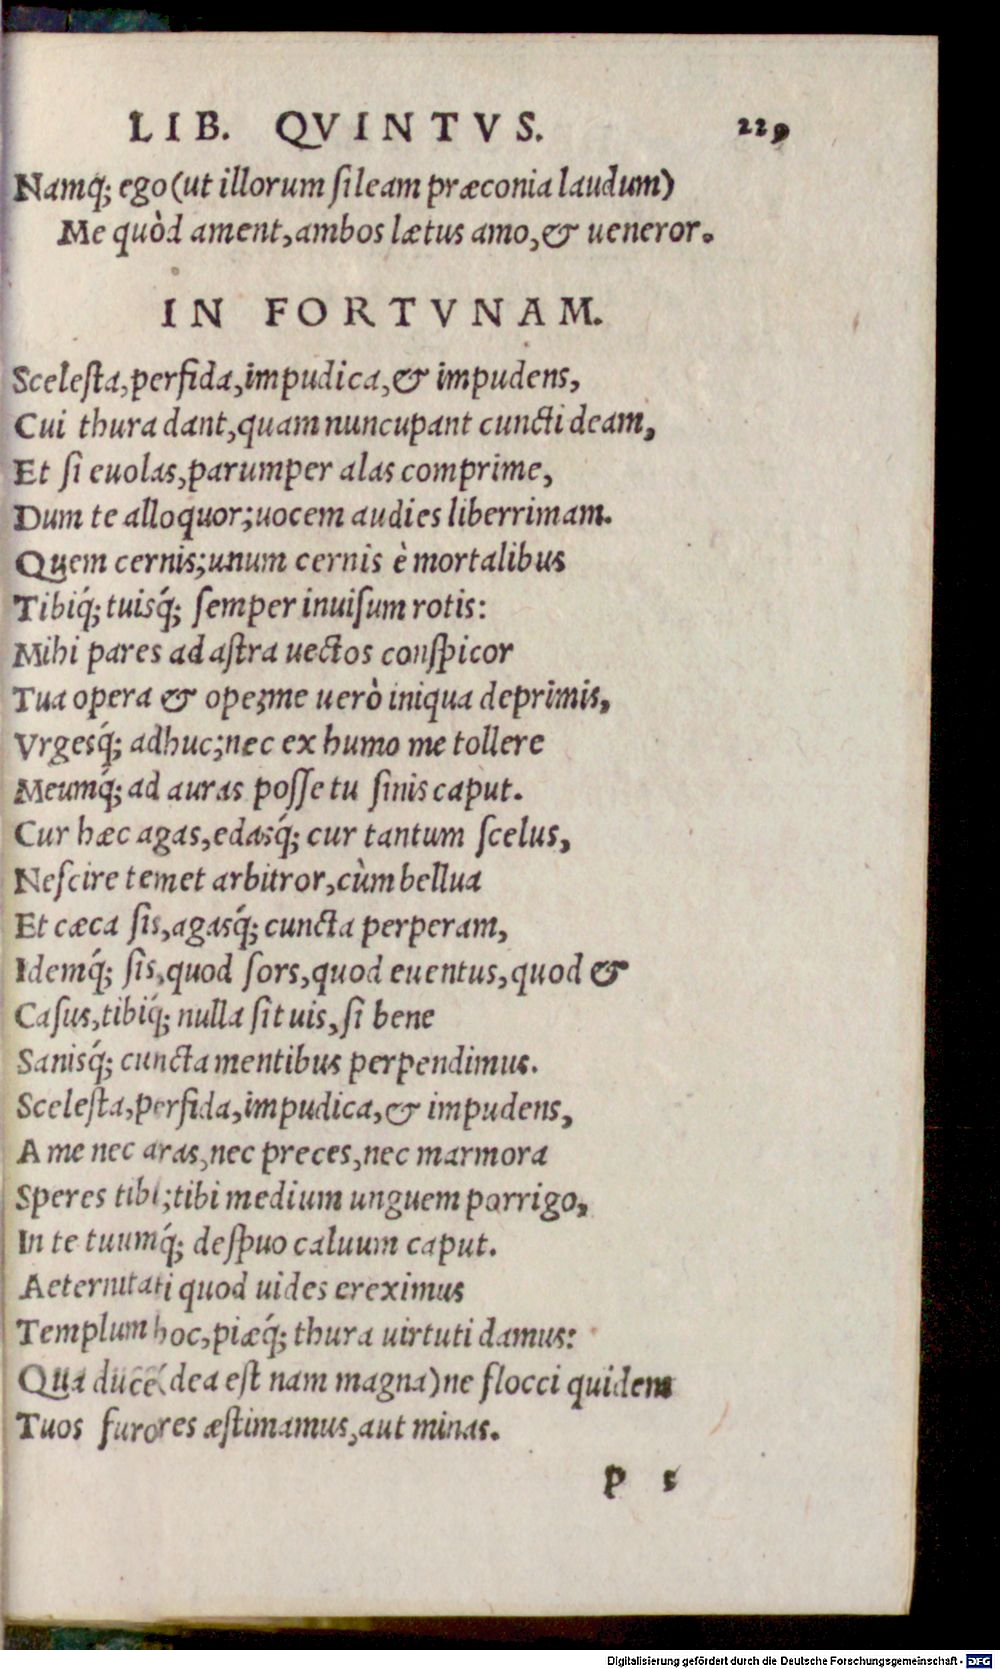 LIB. QVINTVS. 229
Namq́; ego (ut illorum ſileam præconia laudum)
Me quòd ament, ambos lætus amo, & ueneror.
IN FORTVNAM.
Sceleſta, perfida, impudica, & impudens,
Cui thura dant, quam nuncupant cuncti deam,
Et ſi euolas, parumper alas comprime,
Dum te alloquor; uocem audies liberrimam.
Quem cernis; unum cernis è mortalibus
Tibiq́; tuisq́; ſemper inuiſum rotis:
Mihi pares ad aſtra uectos conſpicor
Tua opera & ope; me uerò iniqua deprimis,
Vrgesq́; adhuc; nec ex humo me tollere
Meumq́; ad auras poſſe tu ſinis caput.
Cur hæc agas, edasq́; cur tantum ſcelus,
Neſcire temet arbitror, cùm bellua
Et cæca ſis, agasq́; cuncta perperam,
Idemq́; ſis, quod ſors, quod euentus, quod &
Caſus, tibiq́; nulla ſit uis, ſi bene
Sanisq́; cuncta mentibus perpendimus.
Sceleſta, perfida, impudica, & impudens,
A me nec aras, nec preces, nec marmora
Speres tibi; tibi medium unguem porrigo,
In te tuumq́; deſpuo caluum caput.
Aeternitati quod uides ereximus
Templum hoc, piæq́; thura uirtuti damus:
Qua duce (dea eſt nam magna) ne flocci quidem
Tuos furores æſtimamus, aut minas.
P 5
Digitalisierung gefördert durch die Deutsche Forschungsgemeinschaft - DFG